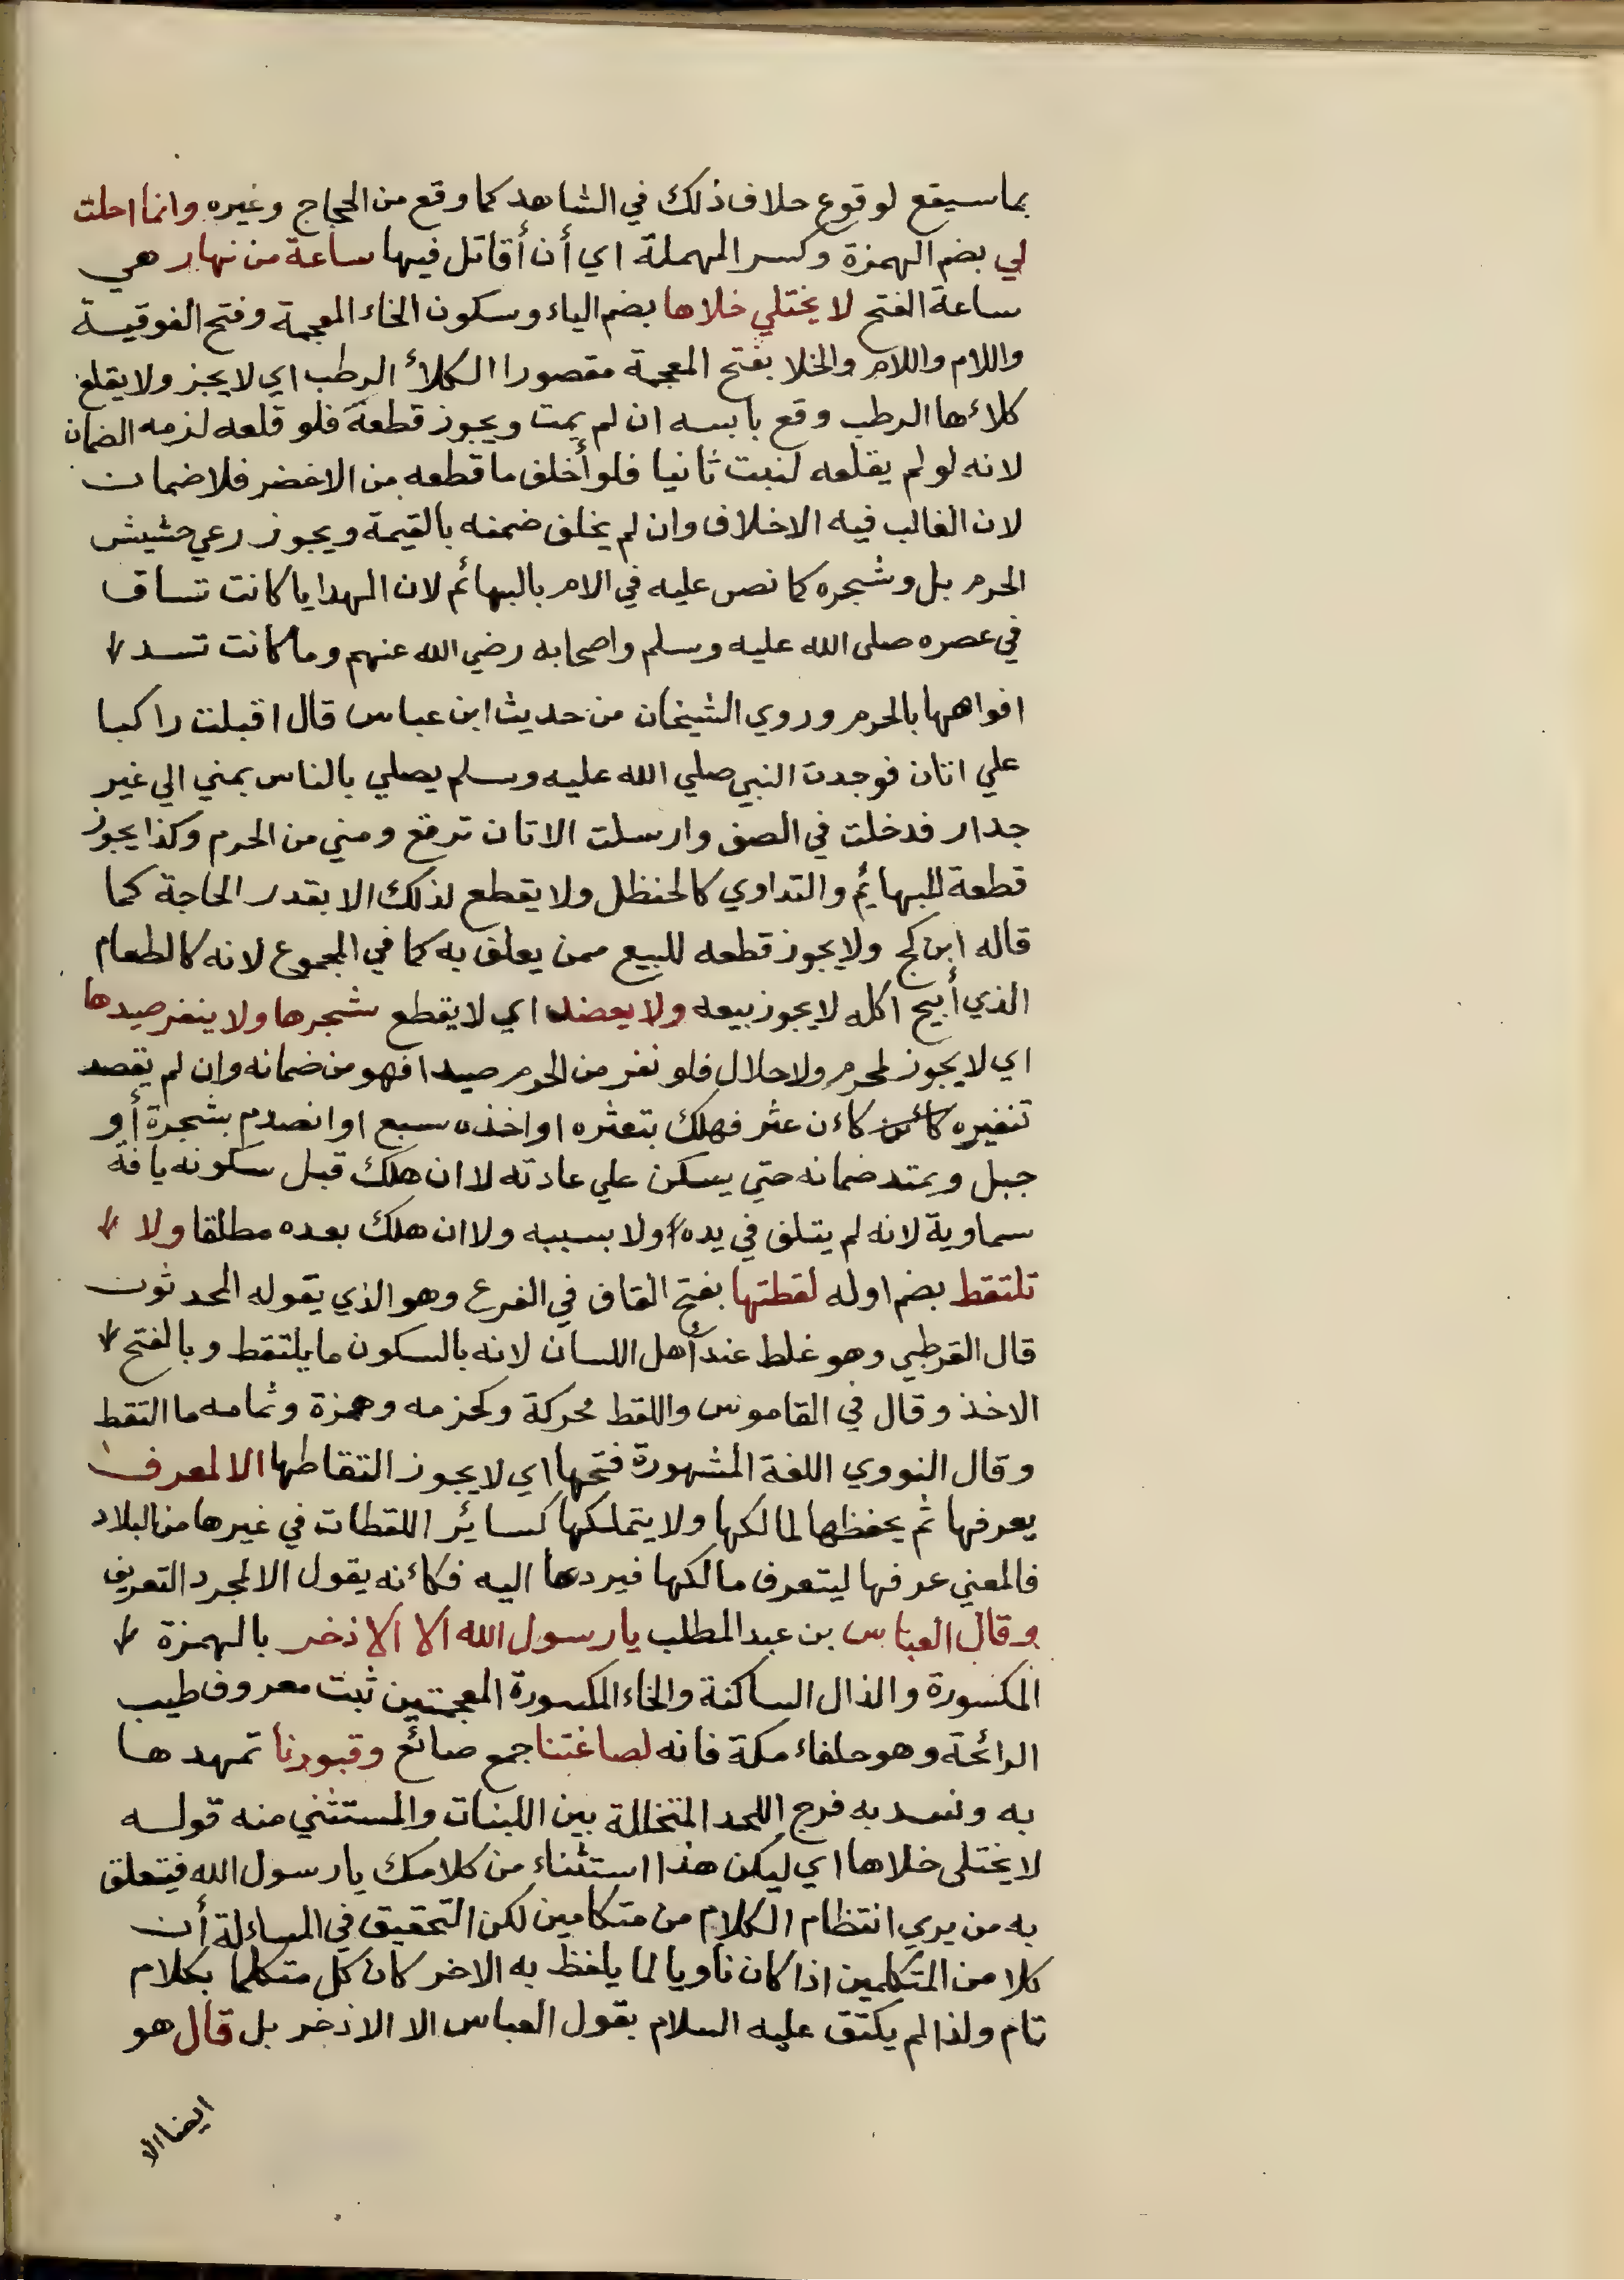 بما سيقع لوقوع حلاف ذلك في الشاهد كما وقع من الحجاج وغيره وانما احلت
لي بضم الهمزة وكسر المهملة اي أن أقاتل فيها ساعة من نهار هي
ساعة الفتح لا يختلي خلاها بضم الياء وسكون الخاء المعجمة وفتح الفوقية
واللام واللام والخلا بفتح المعجمة مقصورا الكلأ الرطب اي لا يجز ولا يقلع
كلاءها الرطب وقع يابسه ان لم يمت ويجوز قطعة فلو قلعه لزمه الضمان
لانه لو لم يقلعه لنبت ثانيا فلو أخلف ما قطعه من الاخضر فلا ضمان
لان الغالب فيه الاخلاف وان لم يخلف ضمنه بالقيمة ويجوز رعي حشيش
الحرم بل وشجره كما نص عليه في الام بالبهائم لان الهدايا كانت تساق
في عصره صلى الله عليه وسلم واصحابه رضي الله عنهم وما كانت تسد
افواهها بالحرم وروي الشيخان من حديث ابن عباس قال اقبلت راكبا
علي اتان فوجدت النبي صلي الله عليه وسلم يصلي بالناس بمني الي غير
جدار فدخلت في الصف وارسلت الاتان ترقع ومني من الحرم وكذا يجوز
قطعة للبهايم والتداوي كالحنظل ولا يقطع لذلك الا بقدر الحاجة كما
قاله ابن كج ولا يجوز قطعه للبيع ممن يعلف به كما في المجموع لانه كالطعام
الذي أبيح اكله لا يجوز بيعه ولا يعضد اي لا يقطع شجرها ولا ينفر صيدها
اي لا يجوز لمحرم ولا حلال فلو نفر من الحرم صيدا فهو من ضمانه وان لم يقصد
تنفيره كائن كاءن عثر فهلك بتعثره او اخذه سبع او انصدم بشجرة أو
جبل ويمتد ضمانه حتي يسكن علي عادته لا ان هلك قبل سكونه يافة
سماوية لانه لم يتلف في يده ولا بسببه ولا ان هلك بعده مطلقا ولا
تلتقط بضم اوله لقطتها بفتح القاف في الفرع وهو الذي يقوله المحدثون
قال القرطبي وهو غلط عند أهل اللسان لانه بالسكون ما يلتقط وبالفتح
الاخذ وقال في القاموس واللقط محركة وكحزمه وهمزة وثمامه ما التقط
وقال النووي اللغة المشهورة فتحها اي لا يجوز التقاطها الا لمعرف
يعرفها ثم يحفظها لمالكها ولا يتملكها كسائر اللقطات في غيرها من البلاد
فالمعني عرفها ليتعرف مالكها فيردها اليه فكاءنه يقول الا لمجرد التعريف
وقال العباس بن عبد المطلب يا رسول الله الا الاذخر بالهمزة
المكسورة والذال الساكنة والخاء المكسورة المعجمتين ثبت معروف طيب
الرائحة وهو حلفاء مكة فانه لصاغتنا جمع صائغ وقبورنا تمهدها
به ونسد به فرج اللحد المتخللة بين اللبنات والمستثني منه قوله
لا يختلى خلاها اي ليكن هذا استثناء من كلامك يا رسول الله فيتعلق
به من يري انتظام الكلام من متكلمين لكن التحقيق في المساءلة أن
كلا من المتكلمين اذا كان ناويا لما يلفظ به الاخر كان كل متكلما بكلام
تام ولذا لم يكتف عليه السلام بقول العباس الا الاذخر بل قال هو
ايضا الا